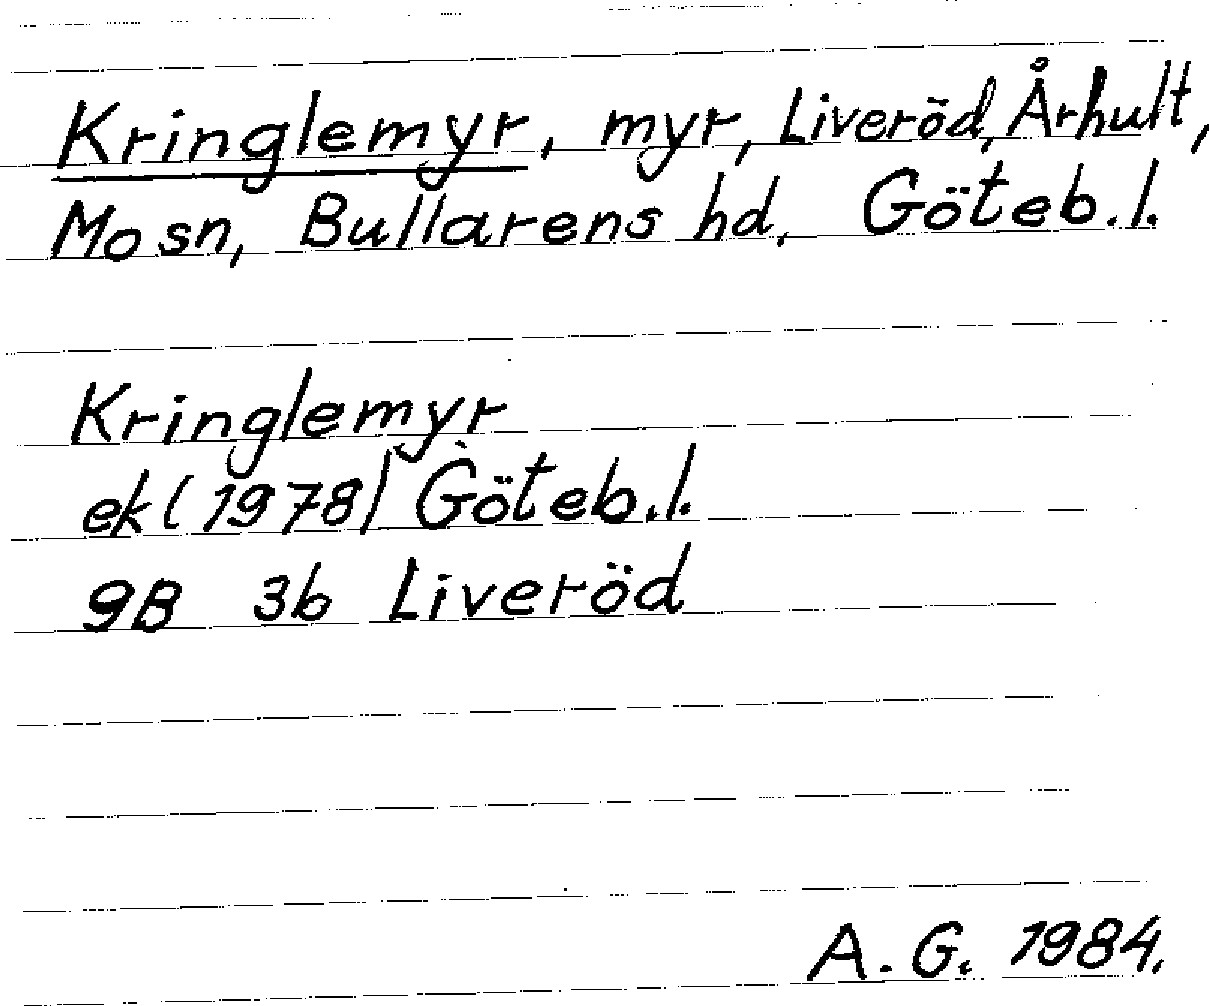 Kringlemyr, myr, Liveröd, Århult,
Mo sn, Bullarens hd, Göteb.l.
Kringlemyr
ek (1978) Göteb.l.
9B 3b Liveröd
A. G. 1984.